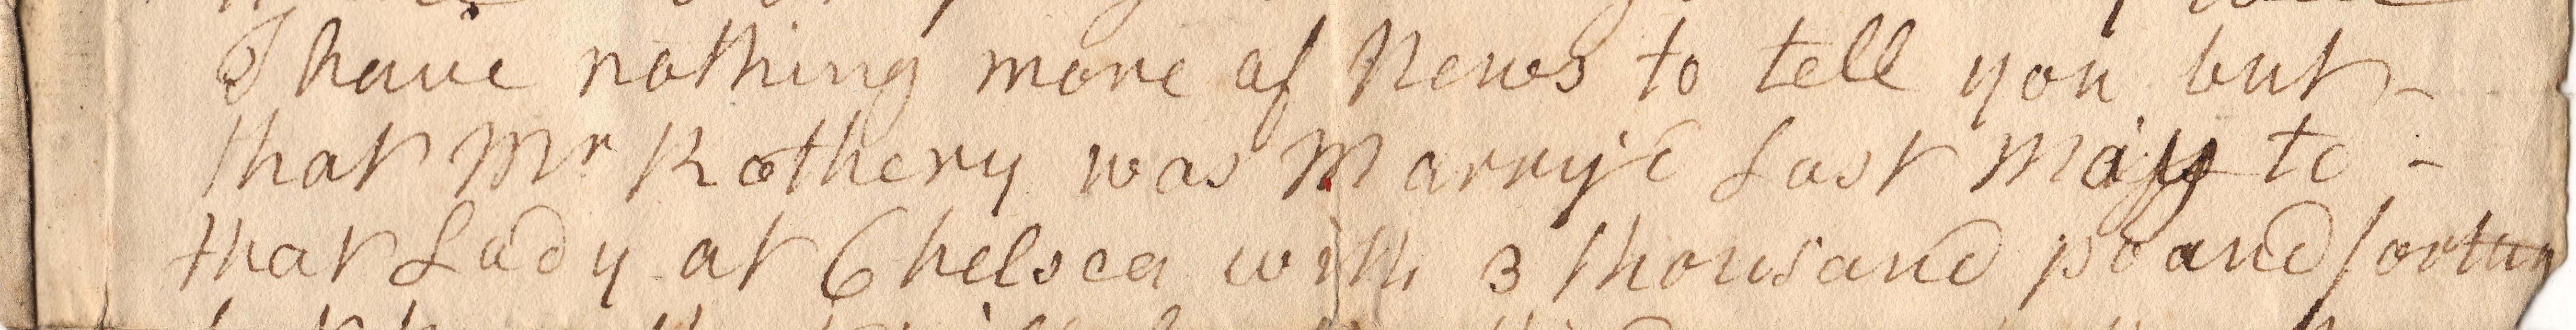 I have nothing more of News to tell you but -
that Mr Rothery was Marry'd Last May to -
that Lady at Chelsea with 3 thousand poand fortun